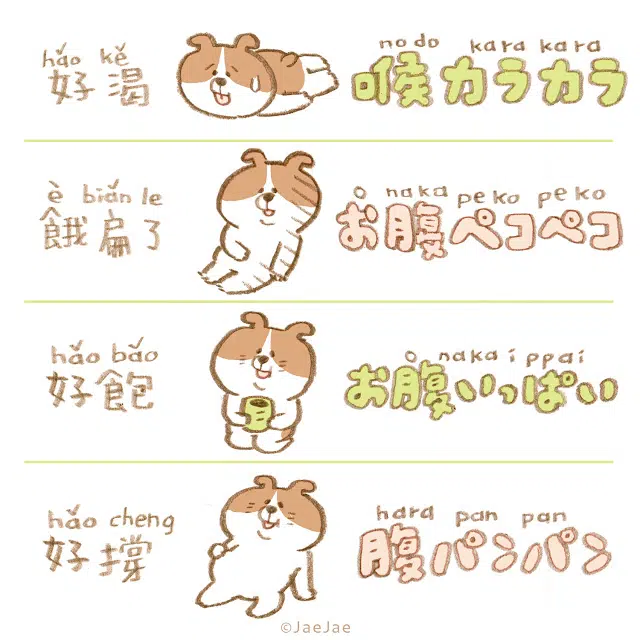 hǎo kě
好 渴
nodo kara kara
喉カラカラ
è biǎn le
餓 扁 了
o naka peko peko
お腹ペコペコ
hǎo bǎo
好 飽
o naka ippai
お腹いっぱい
hǎo cheng
好 撐
hara pan pan
腹パンパン
©JaeJae